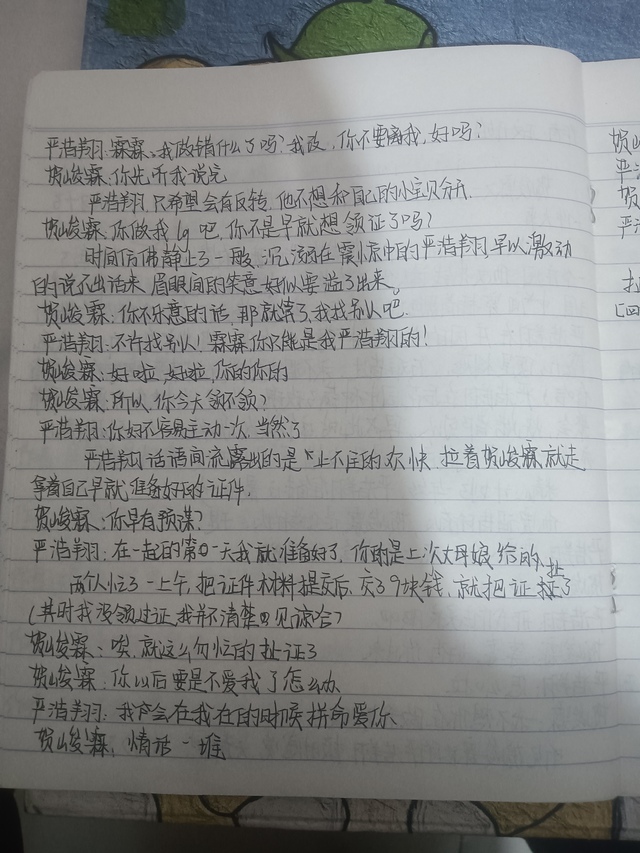 严浩翔:霖霖、我做错什么了吗?我改,你不要离我,好吗?
贺峻霖:你先听我说完
严浩翔只希望会有反转,他不想和自己的小宝贝分开
贺峻霖:你做我lg吧,你不是早就想领证了吗?
时间仿佛静止了一般,沉溺在震惊中的严浩翔,早以激动
的说不出话来,眉眼间的笑意好似要溢了出来。
贺峻霖:你不乐意的话,那就算了,我找别人吧.
严浩翔:不许找别人!霖霖你只能是我严浩翔的!
贺峻霖:好啦,好啦,你的你的
贺峻霖:所以,你今天领不领?
严浩翔:你好不容易主动一次,当然了
严浩翔话语间流露出的是止不住的欢快,拉着贺峻霖就走
拿着自己早就准备好的证件.
贺峻霖:你早有预谋?
严浩翔:在一起的第一天我就准备好了,你的是上次丈母娘给的.
两个人忙了一上午,把证件材料提交后,交了9块钱,就把证扯了
(其时我没领过证,我并不清楚,见谅哈)
贺峻霖:唉,就这么匆忙的扯证了
贺峻霖:你以后要是不爱我了怎么办
严浩翔:我会在我在的时候拼命爱你
贺峻霖:情话一堆
贺
严
贺
严浩
扯
[四